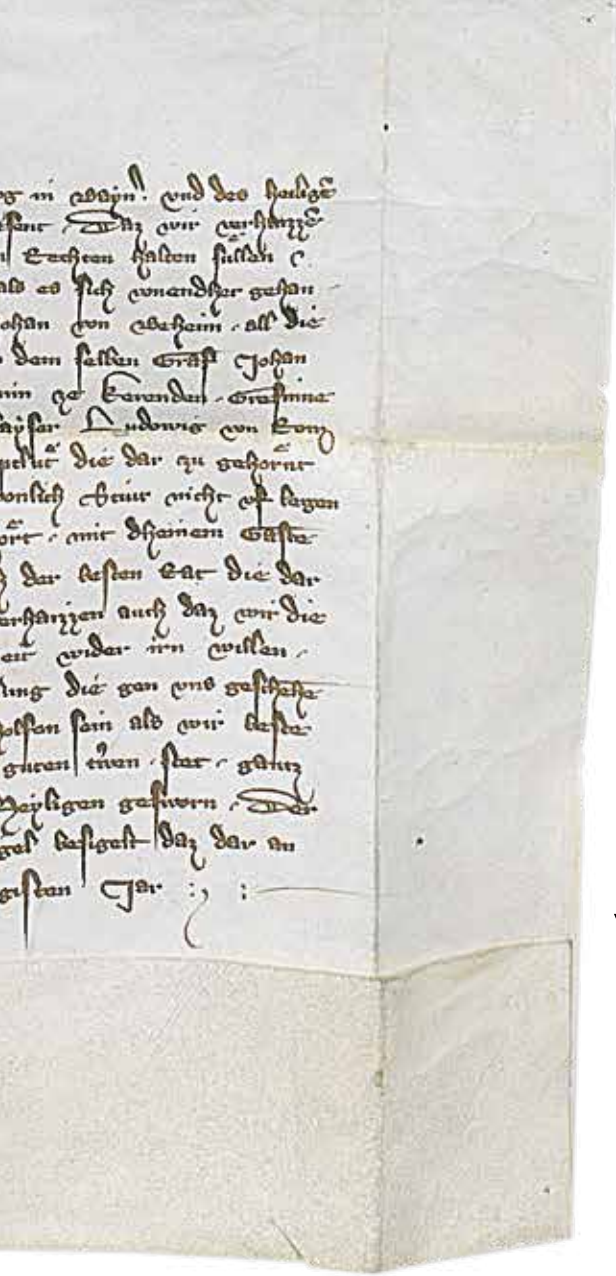 og in Bayrn. vnd des heiligē
sent. Daz wir verhaizzē
Rechten halten süllen
als es sich vnendher gehan
ohan von Beheim. all die
dem selben Graf Johan
min ze Kerenden. Grefinne
ayser Ludowig von Rom
die dar zu gehörnt
onlich Stiur nicht vf legen
ört. mit dheinem Gaste
der besten Rat die dar
erhaizzen auch daz wir die
eit wider irn willen.
ung die gen vns geschehe
olfen sein als wir beste
guten triwen. stet. gantz
Heyligen gesworn. Der
gel besigelt daz dar an
gisten Jar